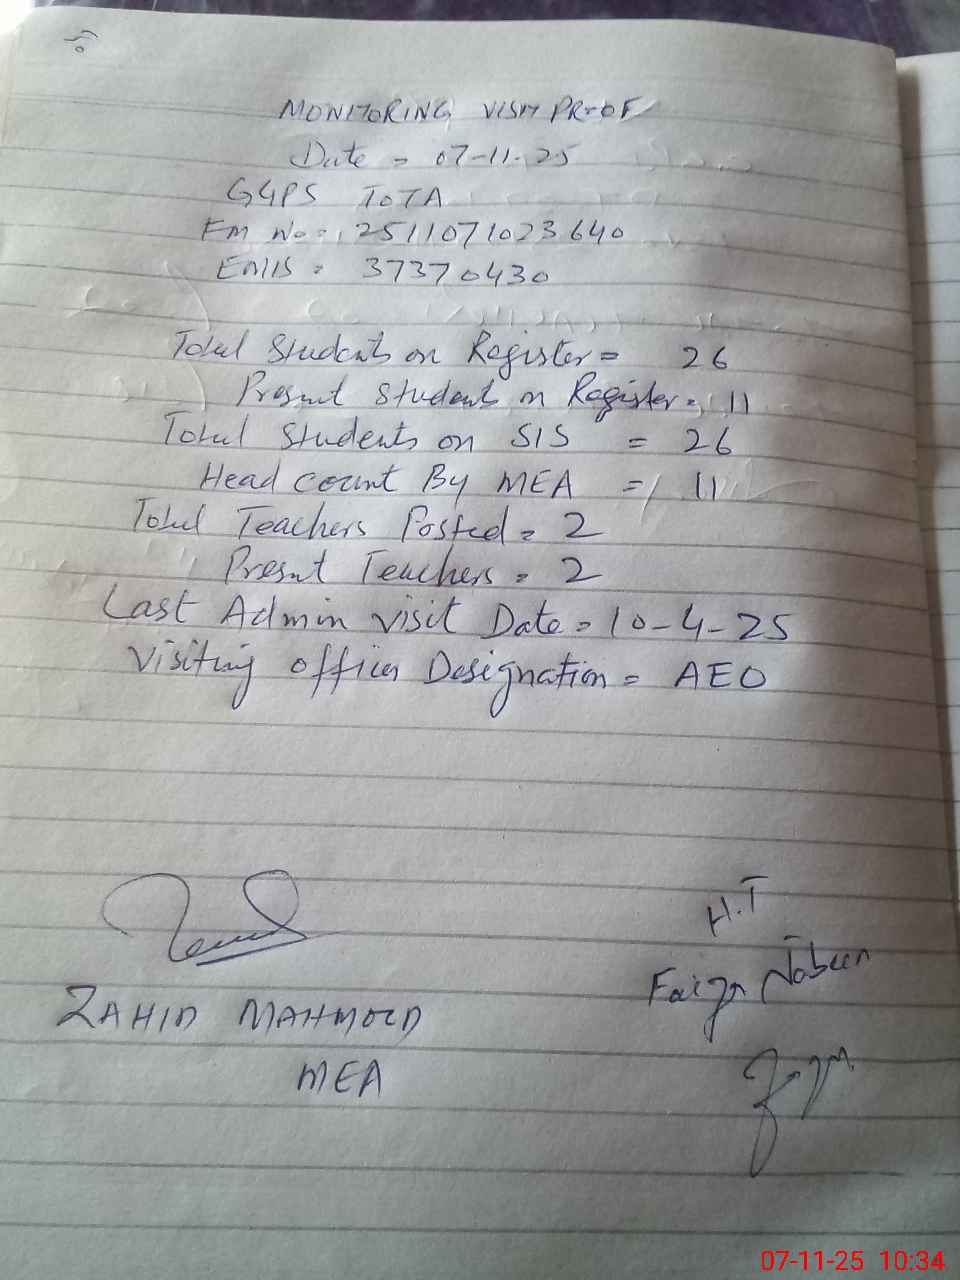 MONITORING VISIT PROOF
Date = 07-11-25
GGPS TOTA
EM No = 2511071023640
EMIS = 37370430
Total Students on Register = 26
Present Students on Register = 11
Total Students on SIS = 26
Head count By MEA = 11
Total Teachers Posted = 2
" Present Teachers = 2
Last Admin visit Date = 10-4-25
Visiting officer Designation = AEO
H.T
Faiza Nabeen
ZAHID MAHMOOD
MEA
07-11-25 10:34